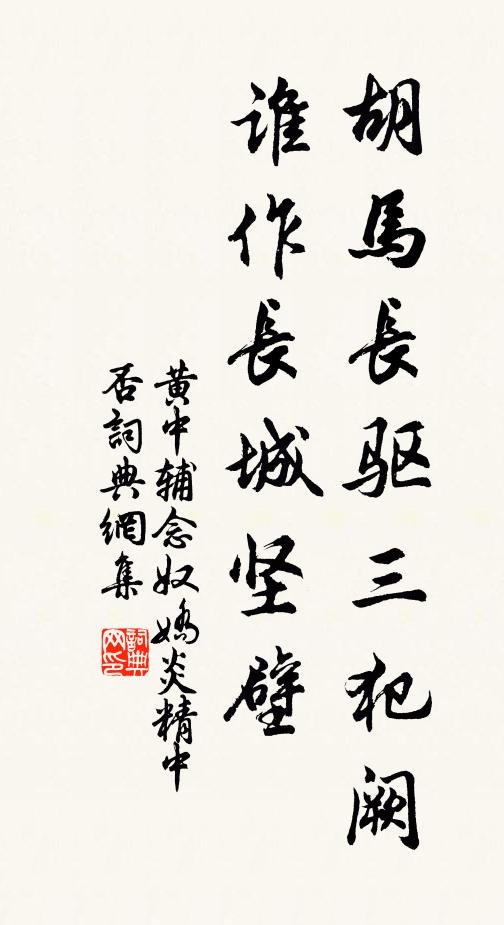 胡馬長驱三犯阙
谁作長城坚壁
黄中辅念奴嬌炎精中
否詞典網集
詞典网印